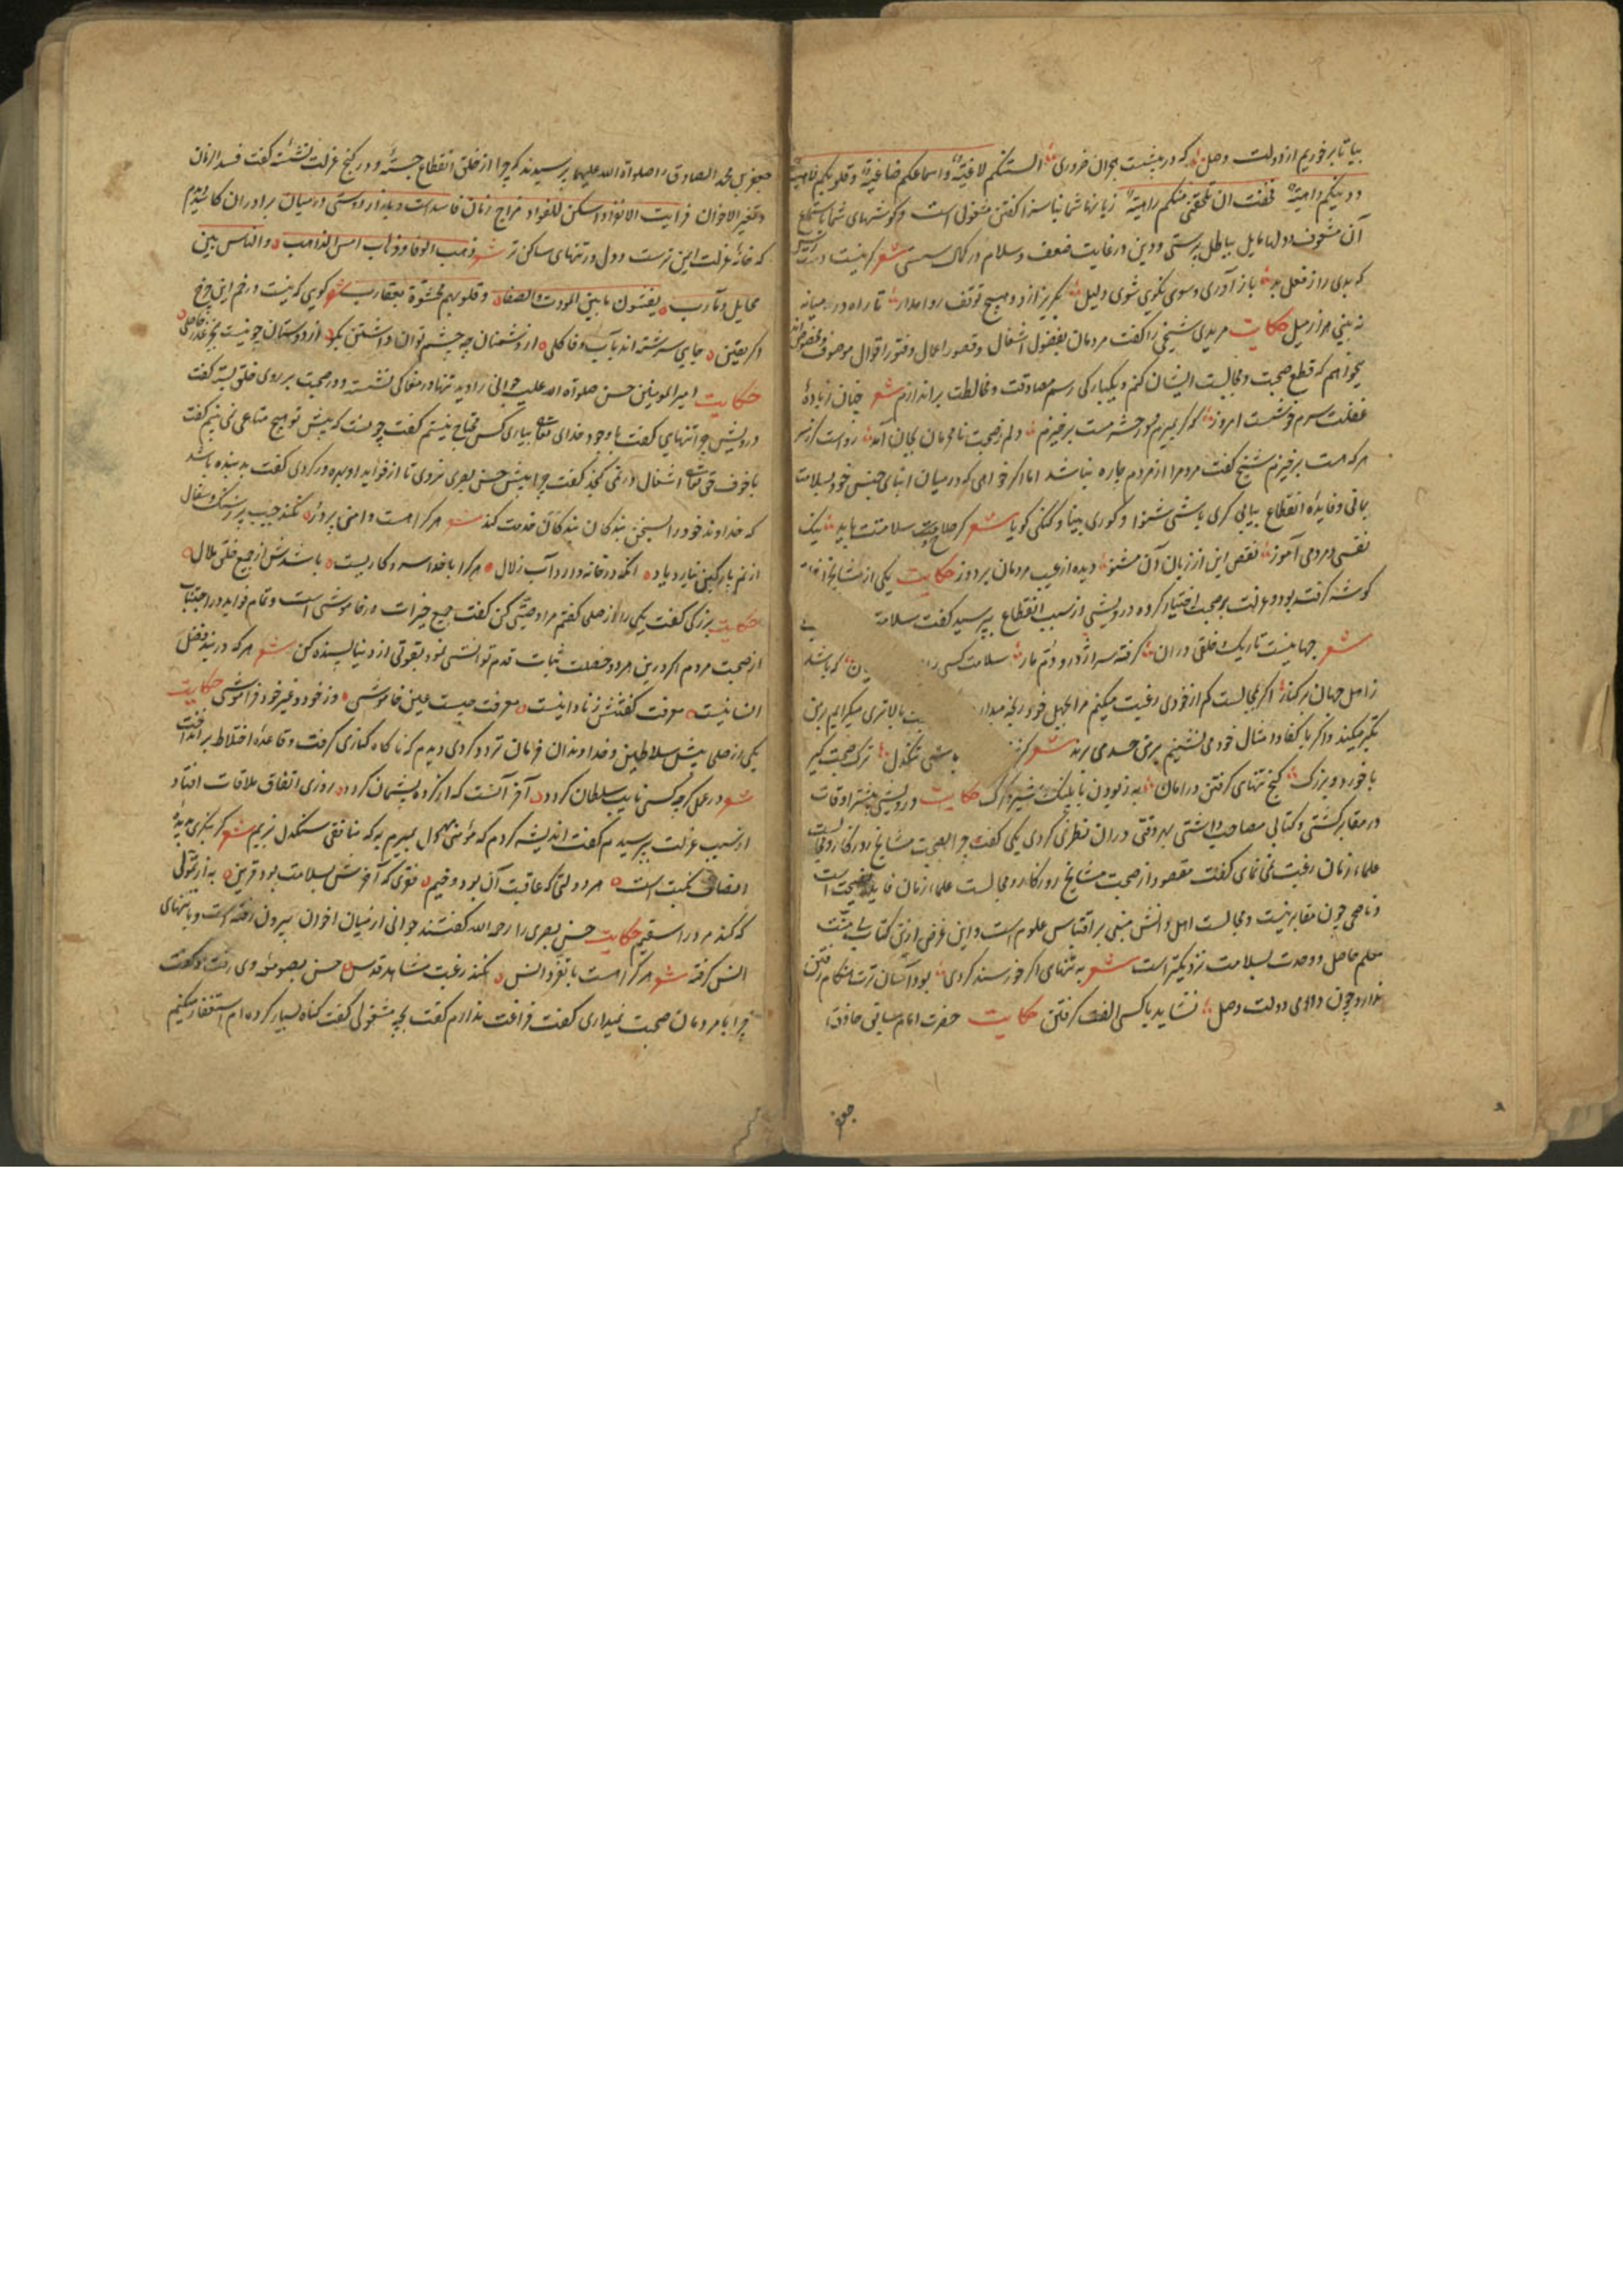 بیا تا برخوریم از دولت وصل که در پیشست هجران ضروری السنتکم لاغیة واسماعکم صاغیة وقلوبکم لاهیة
ودینکم واهیة فخفت ان تلحقنی منکم راهیة زبانها شما بناسزا گفتن مشغول است وگوشهای شما باستماع
آن مشعوف ودلها مایل بباطل پرستی ودین در غایت ضعف وسلام در کمال سستی شعر گرنیست
که بدی را ز فعل بد باز آوری وسوی نکوی شوی دلیل بگریز ازو وهیچ توقف روا مدار تا راه در میانه
نه بینی هزار میل حکایت مریدی شیخی را گفت مردمان بفضول اشغال وقصور اعمال وفتور اقوال موصوف
میخواهم که قطع صحبت ومجالست ایشان کنم ویکبارگی رسم مصادقت ومخالطت براندازم شعر چنان زباده
غفلت سرم خوشست امروز که گر بمیرم نور حشر مست برخیزم دلم ز صحبت نامحرمان بجان آمد رواست کز سر
هر که هست برخیزم شیخ گفت مردم را از مردم چاره نباشد اما اگر خواهی که در میان ابنای جنس خود بسلامت
بمانی وفایده انقطاع بیابی کری باش شنوا وکوری بینا وگنگی گویا شعر گر صلاح وسلامتت باید نیک
نفسی ومردمی آموز نقص این از زبان آن مشنو دیده از عیب مردمان بردوز حکایت یکی از مشایخ
گوشه گرفته بود وعزلت بر صحبت اختیار کرده درویشی از سبب انقطاع بپرسید گفت سلامة
شعر جهانیست تاریک وخلقی دران گرفته سر اژدر ودم مار سلامت کسی را که باشد
ز اهل جهان بر کنار اگر مجالست کم از خودی رغبت میکنم مرا بجهل خود رنجه میدارد بالاتری میگرایم بر من
تکبر میکند واگر با کفاء وامثال خود می نشینم بر من حسد می برند شعر باشی تنگدل ترک صحبت گیر
با خورد وبزرگ کنج تنهای گرفتن در امان به ز بودن با پلنگ وشیر وگرگ حکایت درویشی بیشتر اوقات
در مقابر گشتی وکتابی مصاحب داشتی بهر وقتی دران نظری کردی یکی گفت چرا بصحبت مشایخ روزگار ومجالست
علماء زمان رغبت نمی نمای گفت مقصود از صحبت مشایخ روزگار ومجالست علماء زمان فایده نصیحت است
وناصحی چون مقابر نیست ومجالست اهل دانش مبنی بر اقتباس علوم است واین غرض ازین کتاب بی منت
معلم حاصل ووحدت بسلامت نزدیکتر است شعر به تنهای اگر خورسند کردی بود آسان ترت هنگام رفتن
ندارد چون دوامی دولت وصل نشاید با کسی الفت گرفتن حکایت حضرت امام بحق جعفر
جعفر بن محمد الصادق را صلوات الله علیهما پرسیدند که چرا از خلق انقطاع جسته ودر کنج عزلت نشسته گفت فسد الزمان
وتغیر الاخوان فرایت الانفراد اسکن للفواد مزاج زمان فاسد است وبازار دوستی در میان برادران کاسد دیدم
که خانه عزلت ایمن ترست ودل در تنهای ساکن تر شعر ذهب الوفا وذهاب امس الذاهب والناس بین
مخایل ومآرب یفشون ما بینی المودت والصفا وقلوبهم محشوة بعقارب شعر گویی که نیست در خم این چرخ
گر یقین جایی سرشته اند بآب وفا گلی از دشمنان چه چشم توان داشتن نکو از دوستان چو نیست بجز غدر حاصلی
حکایت امیر المومنین حسن صلواة الله علیه جوانی را دید تنها در مغاکی نشسته ودر صحبت بر روی خلق بسته گفت
درویش چرا تنهایی گفت با وجود خدای تعالی بیاری کس محتاج نیستم گفت چونست که پیش تو هیچ متاعی نمی بینم گفت
با خوف حق تعالی اشغال در نمی گنجد گفت چرا پیش حسن بصری نروی تا از فواید او بهره ور گردی گفت بد بنده باشد
که خداوند خود را بسخن بندگان بندگان خدمت کند شعر هر کرا هست دامنی پر در نکند جیب پر ز سنگ وسفال
از نم پارگین نیارد یاد آنکه در خانه دارد آب زلال هر کرا با خدا سر وکاریست باشدش از جمیع خلق ملال
حکایت بزرگی گفت یکی را از صلحا گفتم مرا وصیتی کن گفت جمیع خیرات در خاموشی است وتمام فواید در اجتناب
از صحبت مردم اگر درین هر دو خصلت ثبات قدم توانی نمود بقوتی از دنیا بسنده کن شعر هر که در بند فضل
انسانیست معرفت گفتنش ز نادانیست معرفت چیست عین خاموشی وز خود وغیر خود فراموشی حکایت
یکی از صلحا پیش سلاطین وخداوندان فرمان تردد کردی دیدم که ناگاه کناری گرفت وقاعده اختلاط برانداخت
شعر در عمل گرچه کسی نایب سلطان گردد آخر آنست که از کرده پشیمان گردد روزی اتفاق ملاقات افتاد
از سبب عزلت بپرسیدم گفت اندیشه کردم که مؤمنی مجهول بمیرم به که منافقی سنگدل بزیم شعر گر بنگری بدیده
انصاف نکبت است هر دولتی که عاقبت آن بود وخیم فقری که آخرش بسلامت بود قرین به از تمولی
که کند مرد را سقیم حکایت حسن بصری را رحمه الله گفتند جوانی از میان اخوان بیرون رفته است وبا تنهای
انس گرفته شعر هر کرا هست با تفرد انس نکند رغبت مشاهد قدس حسن بصومعه وی رفت وگفت
چرا با مردمان صحبت نمیداری گفت فراغت ندارم گفت بچه مشغولی گفت گناه بسیار کرده ام استغفار میکنم